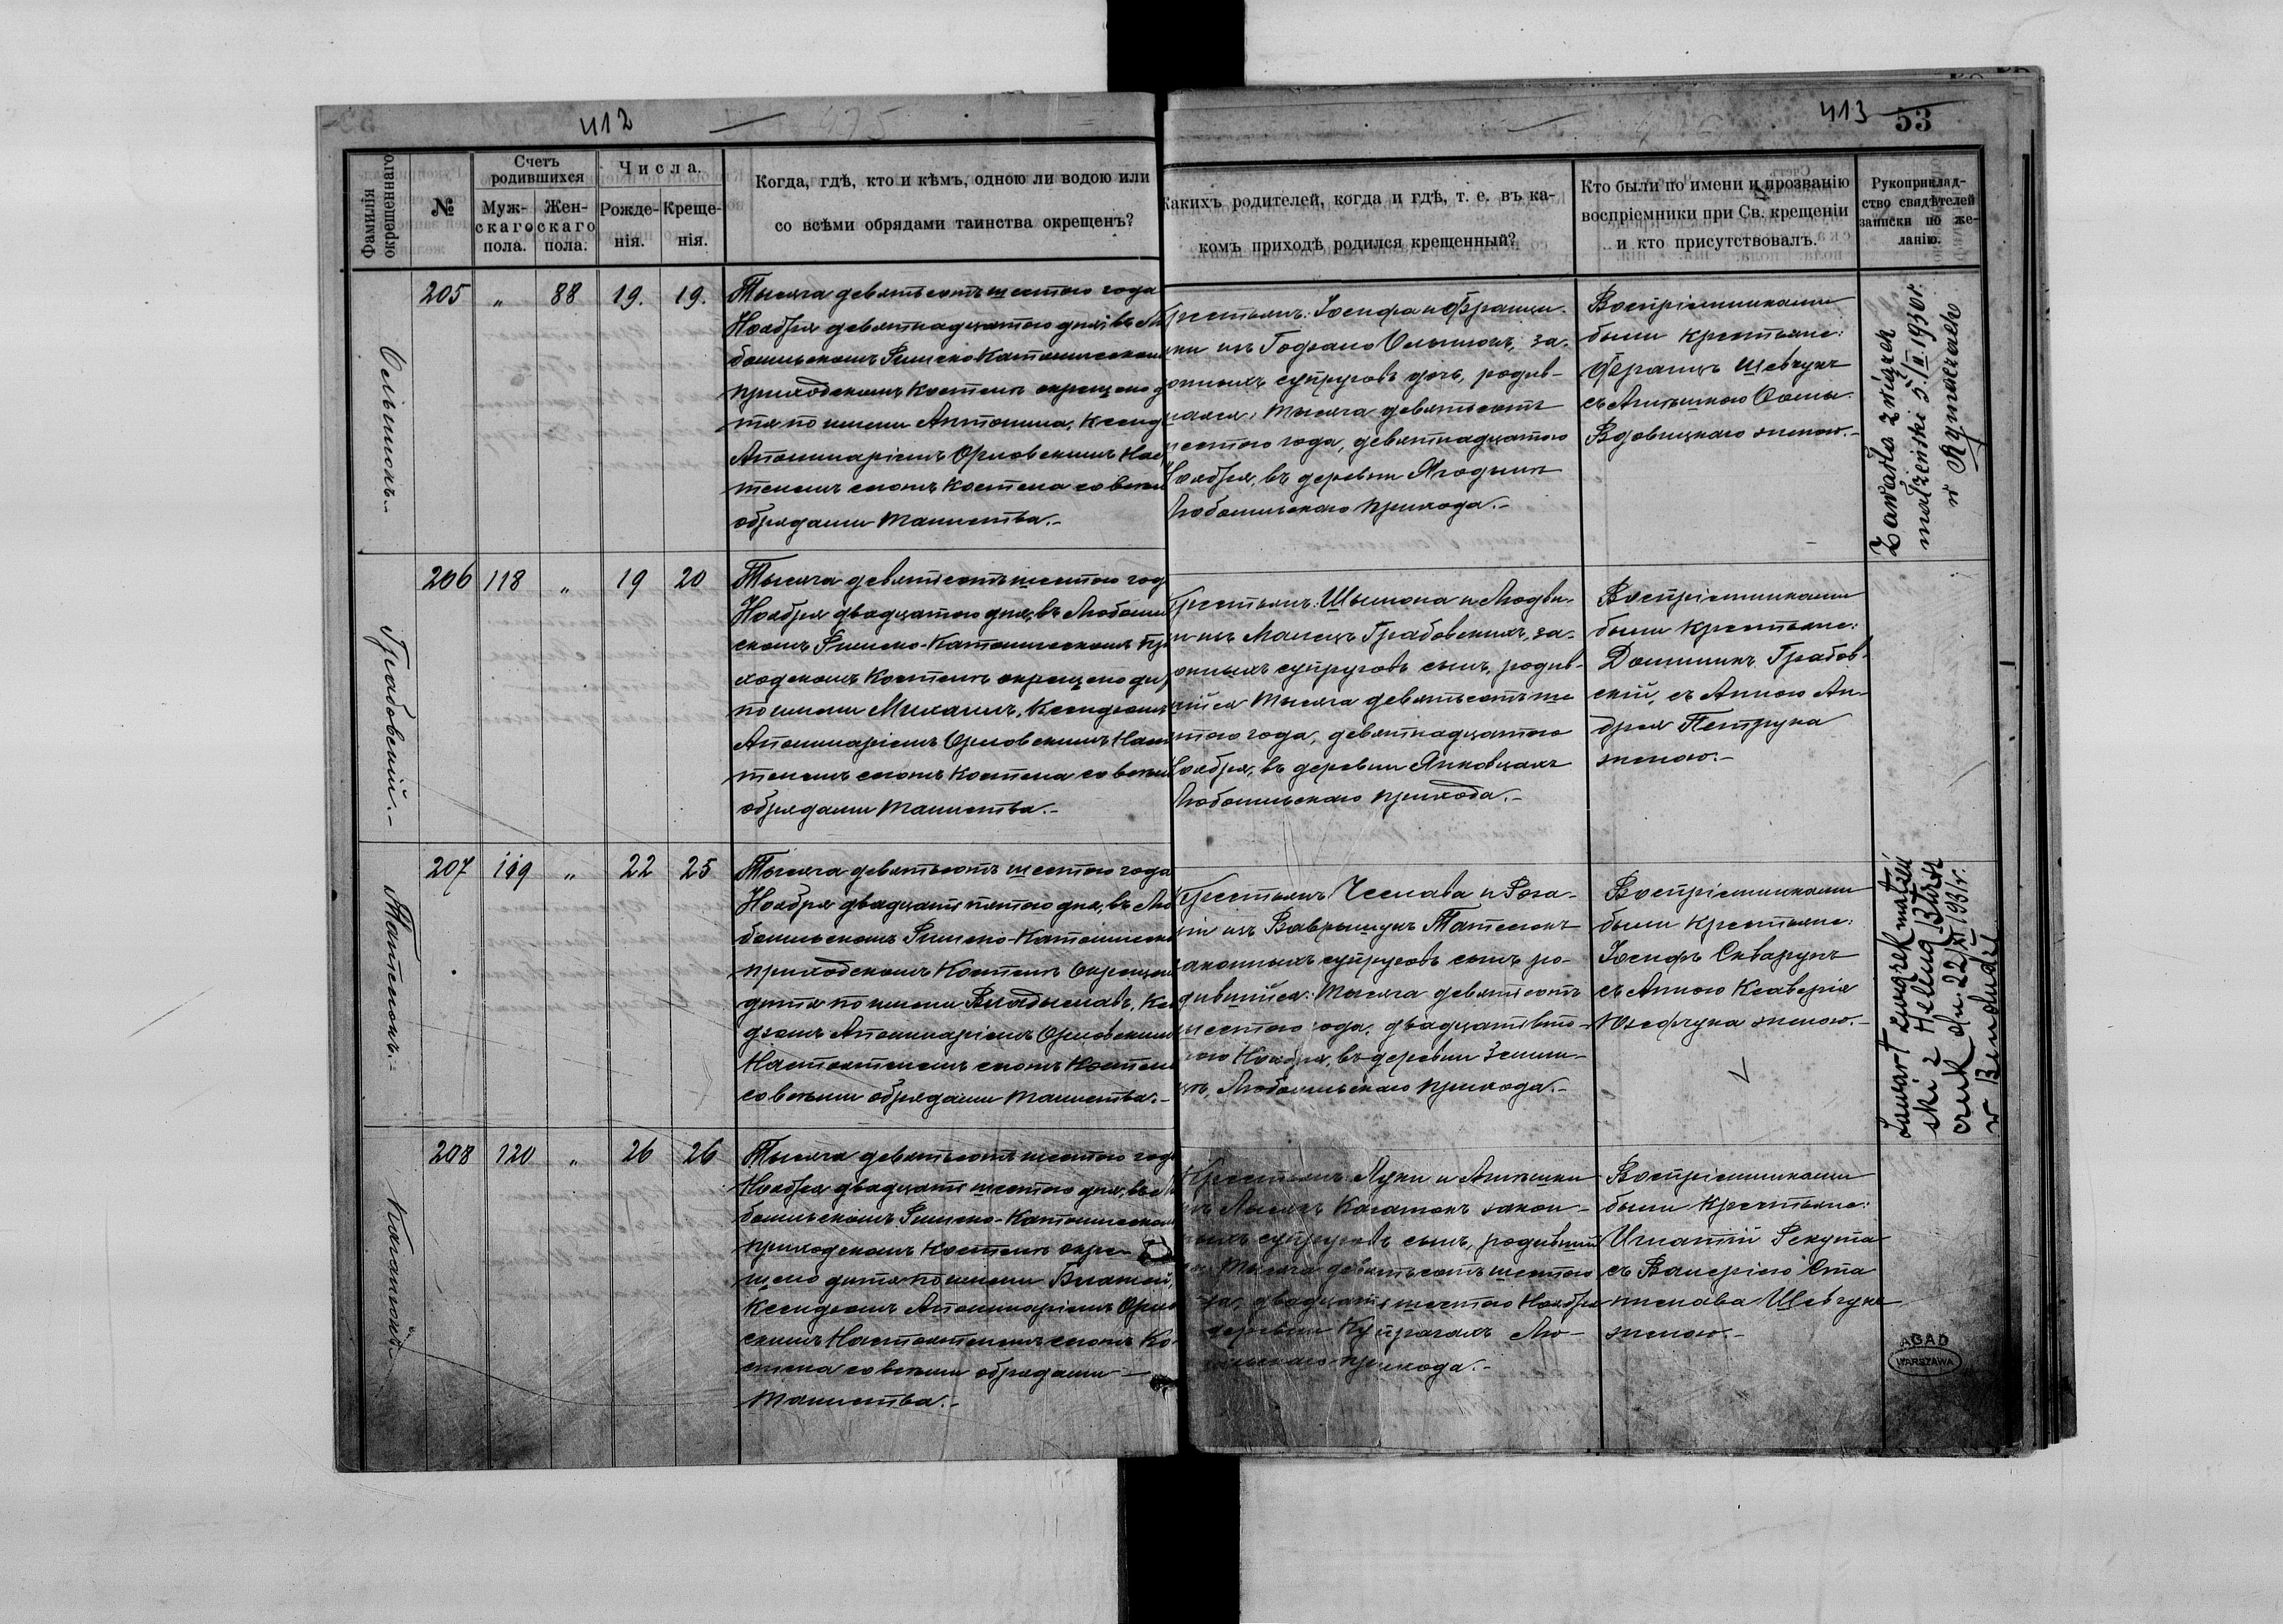 412
413 53
Фамилія окрещеннаго
№
Счетъ родившихся
Мужскаго пола.
Женскаго пола.
Числа.
Рожденія.
Крещенія.
Когда, гдѣ, кто и кѣмъ, одною ли водою или
со всѣми обрядами таинства окрещенъ?
Какихъ родителей, когда и гдѣ, т. е. въ ка-
комъ приходѣ родился крещенный?
Кто были по имени и прозванію
воспріемники при Св. крещеніи
и кто присутствовалъ.
Рукоприклад-
ство свидѣтелей
записки по же-
ланію.
205 „ 88 19. 19.
Тысяча девятьсотъ шестого года
Ноября девятнадцатого дня, въ Лю
бомльскомъ Римско-Католическомъ
приходскомъ Костелѣ окрещено д
тя по имени Антонина, Ксенд
Аполинаріемъ Орловскимъ Нас
телемъ сего Костела со всѣми
обрядами таинства.-
крестьянъ: Іосифа и Франци-
шки изъ за-
конныхъ супруговъ дочь, родив-
шаяся: тысяча девятьсотъ
шестого года, девятнадцатого
Ноября, въ деревни Ягодынѣ
Любомльскаго прихода.-
Воспріемниками
были крестьяне:
Францъ Шевчукъ
съ Антониною
женою.-
Zawarła związek
małżeński 5/II.1930 r.
w Rymaczach
206 118 „ 19 20
Грабовскій.-
Тысяча девятьсотъ шестого год
Ноября двадцатого дня, въ Любомль
скомъ Римско-Католическомъ При
ходскомъ Костелѣ окрещено дит
по имени Михаилъ, Ксендзомъ
Аполинаріемъ Орловскимъ Наст
телемъ сего Костела со всѣми
обрядами таинства.-
Крестьянъ: Шымона и Людви-
ки изъ Малецъ Грабовскихъ, за-
конныхъ супруговъ сынъ, родив-
шійся тысяча девятьсотъ ше
стого года, девятнадцатого
Ноября, въ деревни Янковцахъ
Любомльскаго прихода.-
Воспріемниками
были крестьяне:
Доминикъ Грабов-
скій, съ Анною Ан-
дрея Петрука
женою.-
207 119 „ 22 25
Тысяча девятьсотъ шестого года
Ноября двадцать пятого дня, въ Лю
бомльскомъ Римско-Католическо
приходскомъ Костелѣ окрещено
дитя по имени Владыславъ, Ксен
дзомъ Аполинаріемъ Орловскимъ
Настоятелемъ сего Костела
со всѣми обрядами таинства.-
Крестьянъ Чеслава и Роза-
ліи изъ Ваврынукъ
законныхъ супруговъ сынъ ро-
дившійся: тысяча девятьсотъ
шестого года, двадцать вто-
рого Ноября, въ деревни Земли-
цѣ, Любомльскаго прихода.-
Воспріемниками
были крестьяне:
Іосифъ Скварукъ
съ Анною Ксаверія
Юзефчука женою.-
Zawarł związek małżeń
ski z Heleną
dn. 22/XI 1931 r.
w Binduże
208 120 „ 26 26
Тысяча девятьсотъ шестого год
Ноября двадцать шестого дня, въ
бомльскомъ Римско-Католическом
приходскомъ Костелѣ окре-
щено дитя по имени
Ксендзомъ Аполинаріемъ Орло
скимъ Настоятелемъ сего Ко-
стела со всѣми обрядами
таинства.-
Крестьянъ Луки и Антонины
изъ законныхъ
супруговъ сынъ, родившій
ся тысяча девятьсотъ шестого
года, двадцать шестого Ноября
деревни Купрачахъ Лю-
бомльскаго прихода.-
Воспріемниками
были крестьяне:
Игнатій Рекута
съ Валеріею Ста
нислава Шевчука
женою.-
AGAD
WARSZAWA